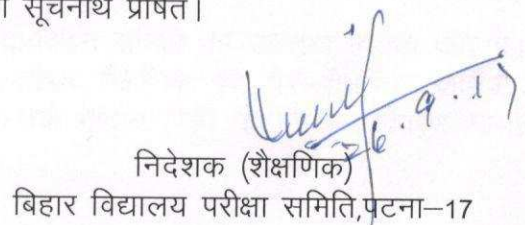 सूचनार्थ प्रेषित।
26.9.17
निदेशक (शैक्षणिक)
बिहार विद्यालय परीक्षा समिति,पटना–17